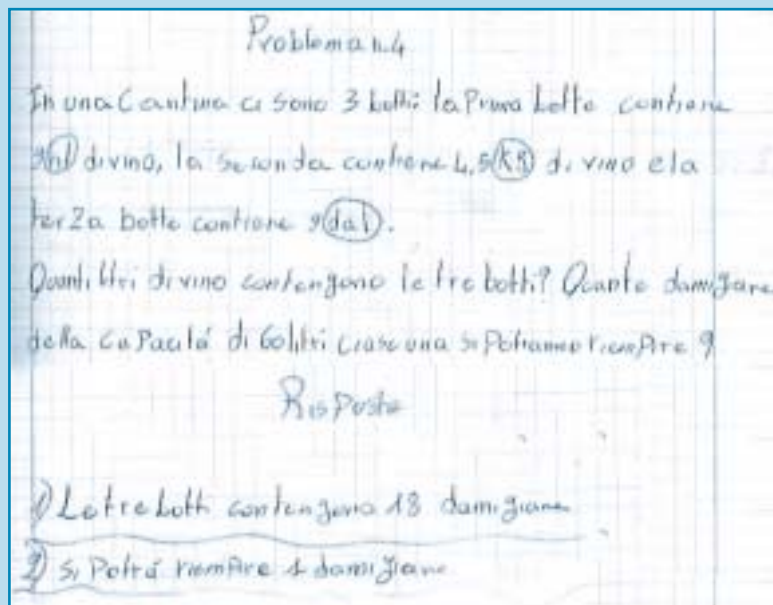 Problema n.4
In una Cantina ci sono 3 botti: la Prima botte contiene
9hl di vino, la seconda contiene 4,5 di vino e la
terza botte contiene 9 dal.
Quanti litri di vino contengono le tre botti? Quante damigiane
della caPacità di 60 litri ciascuna si Potranno riemPire?
RisPoste
1) Le tre botti contengono 18 damigiane
2) Si Potrà riemPire 1 damigiane